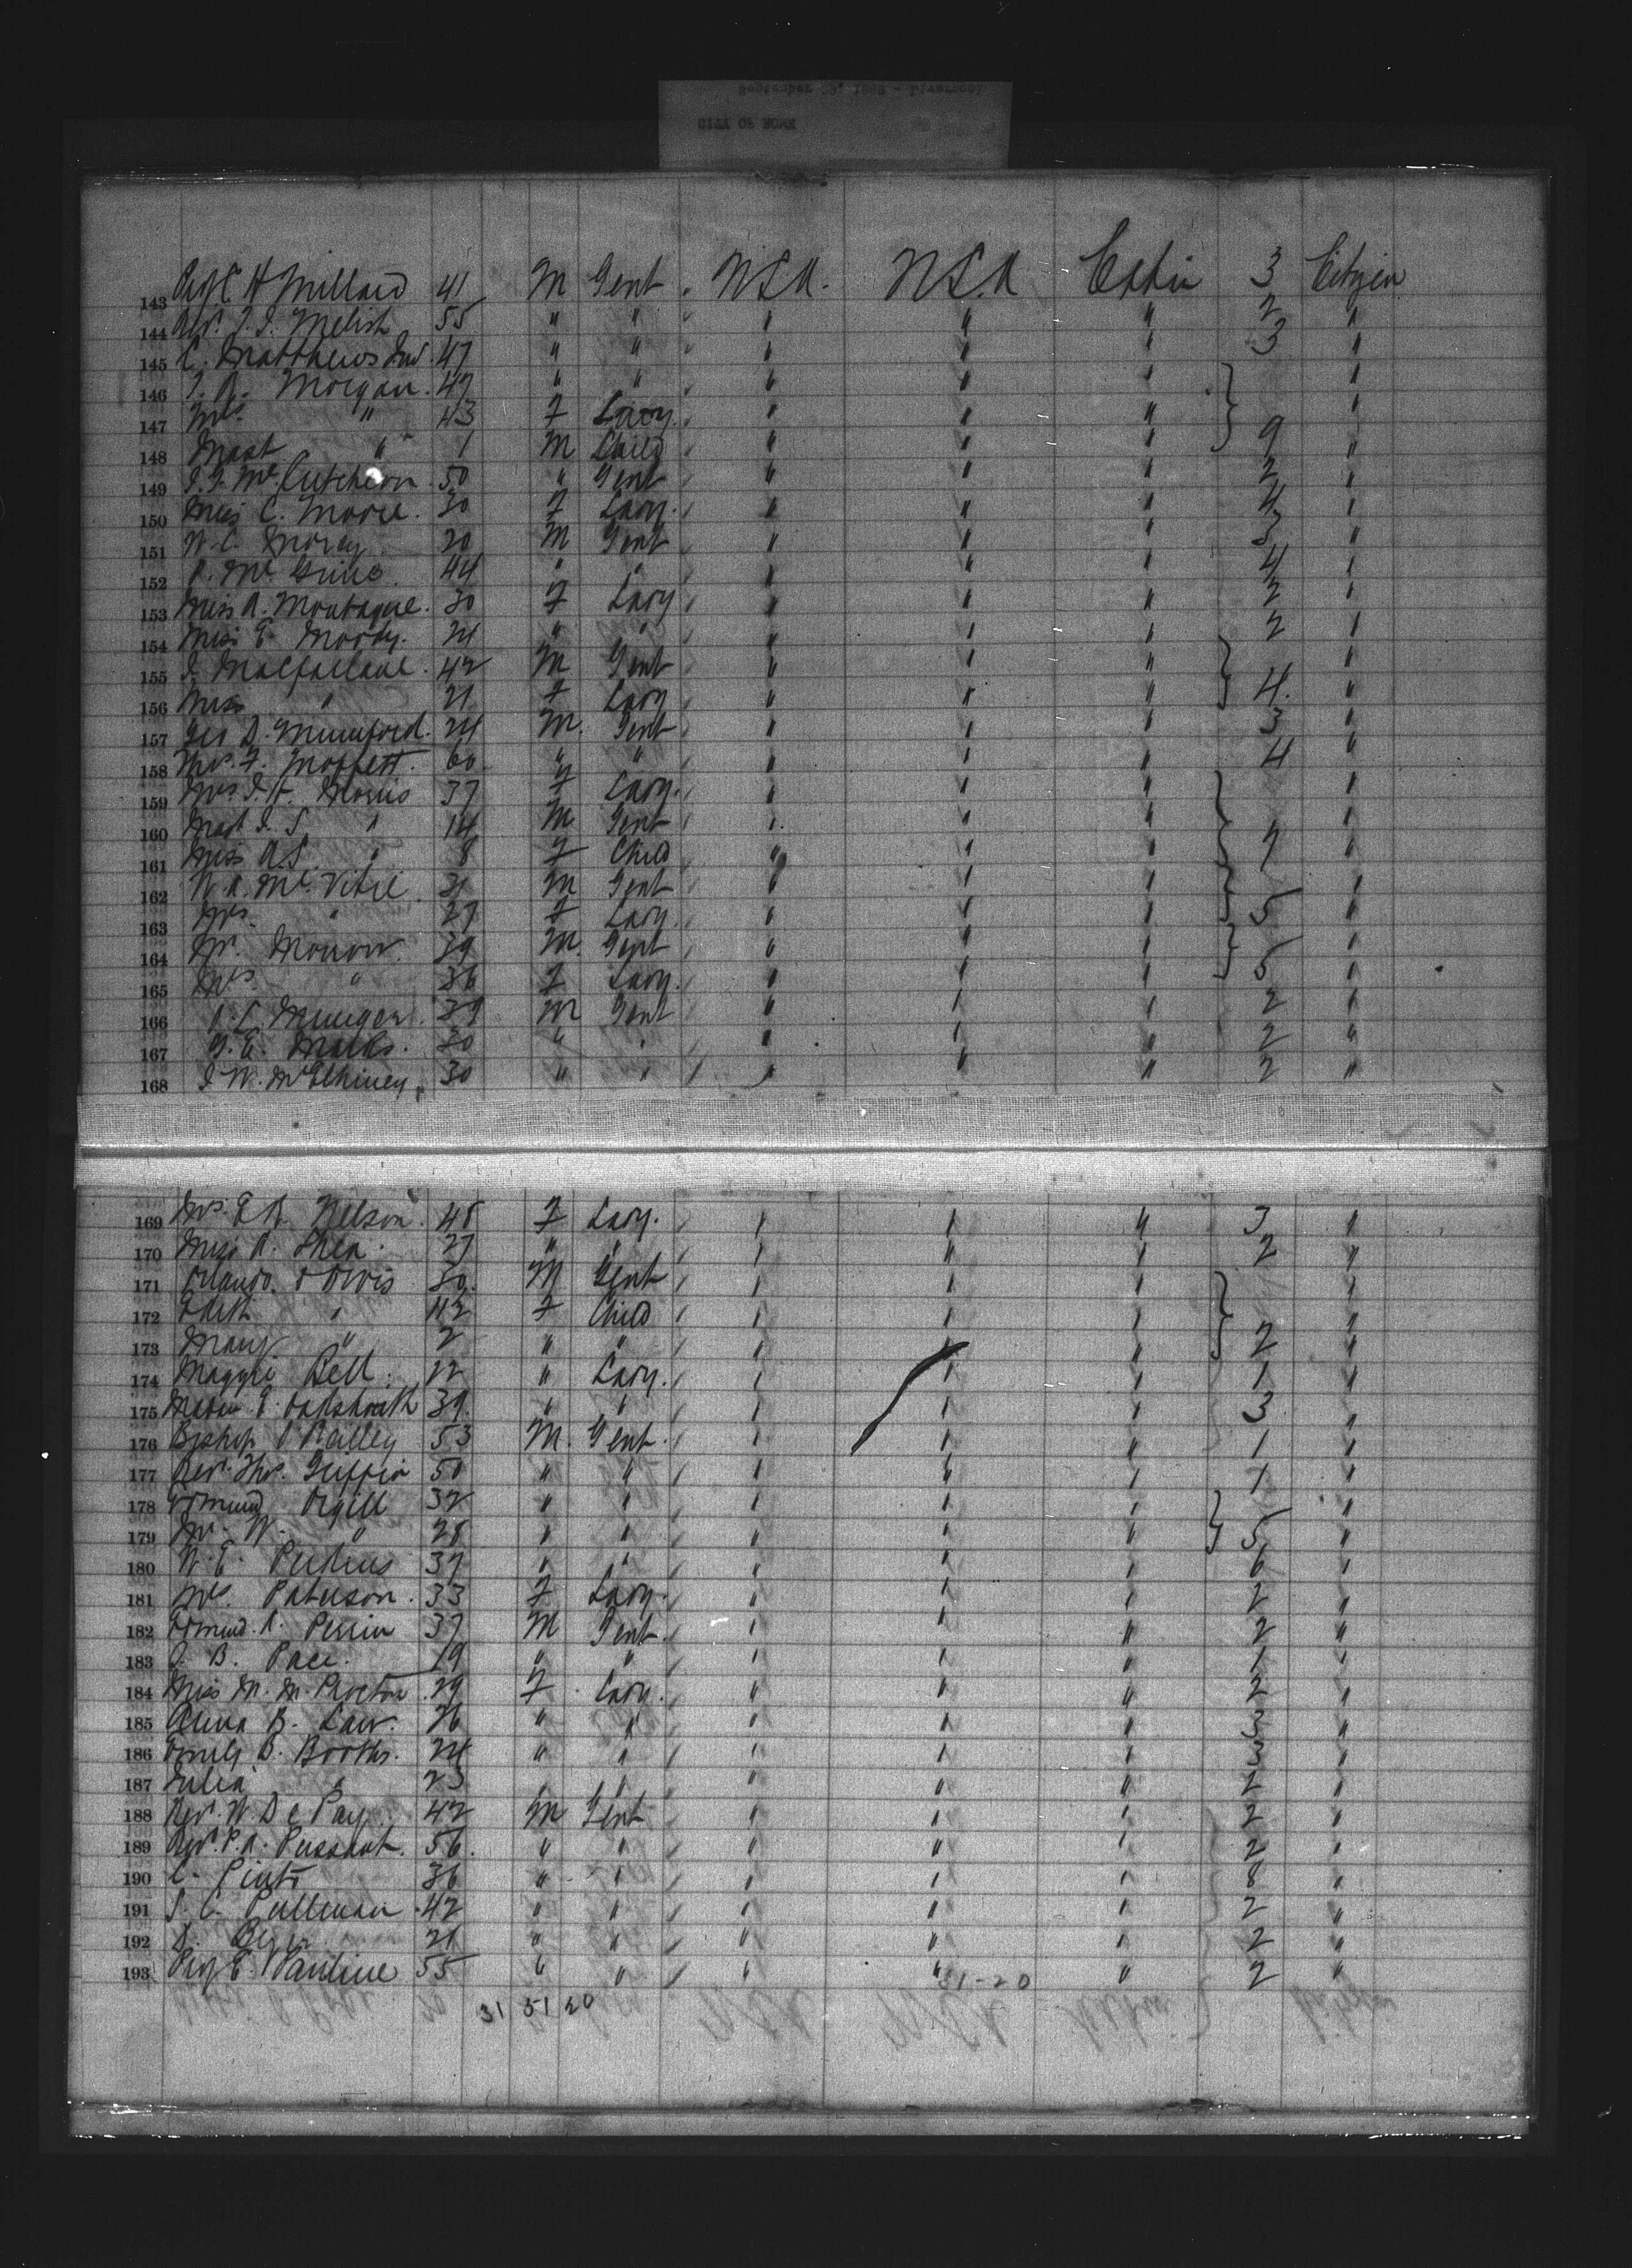 CITY OF ROME
143 Prof. C. H Millard 41 M Gent. U.S.A. U.S.A Cabin 3 Citizen
144 Rev. Melish 55 " " " " " 2 "
145 C. Matthews 47 " " " " " 3 "
146 Morgan. 47 " " " " " "
147 Mrs " 43 F Lady " " " "
148 Mast " 1 M Child " " " 9 "
149 McCutcheon 50 " Gent " " " 2 "
150 Miss C. Moore. 30 F Lady. " " " 4 "
151 W. C. Morey 20 M Gent " " " 3 "
152 44 " " " " " 4 "
153 Miss A. Montague. 30 F Lady " " " 2 "
154 Miss E. Moody. 24 " " " " " 2 "
155 J. Macfarlane. 42 M Gent " " " "
156 Miss " 21 F Lady " " " 4. "
157 Geo D. Mumford. 24 M. Gent " " " 3 "
158 Thos. F. Moffett. 60 " " " " " 4 "
159 Mrs. J. H. Morris 37 F Lady. " " " "
160 Mast J. S. " 14 M Gent " " " "
161 Miss A.S. " 8 F Child " " " 7 "
162 W. A. McVitie 31 M Gent " " " "
163 Mrs. " 27 F Lady. " " " 5 "
164 Mr. Morrow. 39 M. Gent " " " "
165 Mrs. " 36 F Lady. " " " 5 "
166 Munger. 39 M Gent " " " 2 "
167 G. E. Marks. 30 " " " " " 2 "
168 J W. McElhiney 30 " " " " " 2 "
169 Mrs. E. R. Nelson. 45 F Lady. " " " 3 "
170 Miss A. Shea. 27 " " " " " 2 "
171 Orlando 30. M Gent " " " "
172 Edith " 11½ F Child " " " "
173 Mary " 2 " " " " " 2 "
174 Maggie Bell. 22 " Lady. " " " 1 "
175 39. " " " " " 3 "
176 Bishop O'Reilley 53 M. Gent. " " " 1 "
177 Rev. Thos. Griffin 50 " " " " " 1 "
178 Edmund Orgill 32 " " " " " "
179 Mr. W. " 28 " " " " " 5 "
180 W. E. Perkins 37 " " " " " 6 "
181 Mrs. Paterson. 33 F Lady. " " " 2 "
182 Edmund. A. Perrin 37 M Gent. " " " 2 "
183 B. Pace. 19 " " " " " 1 "
184 Miss M. M. Procter. 29 F. Lady. " " " 2 "
185 Anna B. Law. 26 " " " " " 3 "
186 Emily B. Booths. 24 " " " " " 3 "
187 Julia " 23 " " " " " 2 "
188 Rev. W. De Pay 42 M Gent " " " 2 "
189 Rev. P. A. 56. " " " " " 2 "
190 C. Pinto 36 " " " " " 8 "
191 Pullman 42 " " " " " 2 "
192 21 " " " " " 2 "
193 55 " " " " " 2 "
31-20
31 51 20